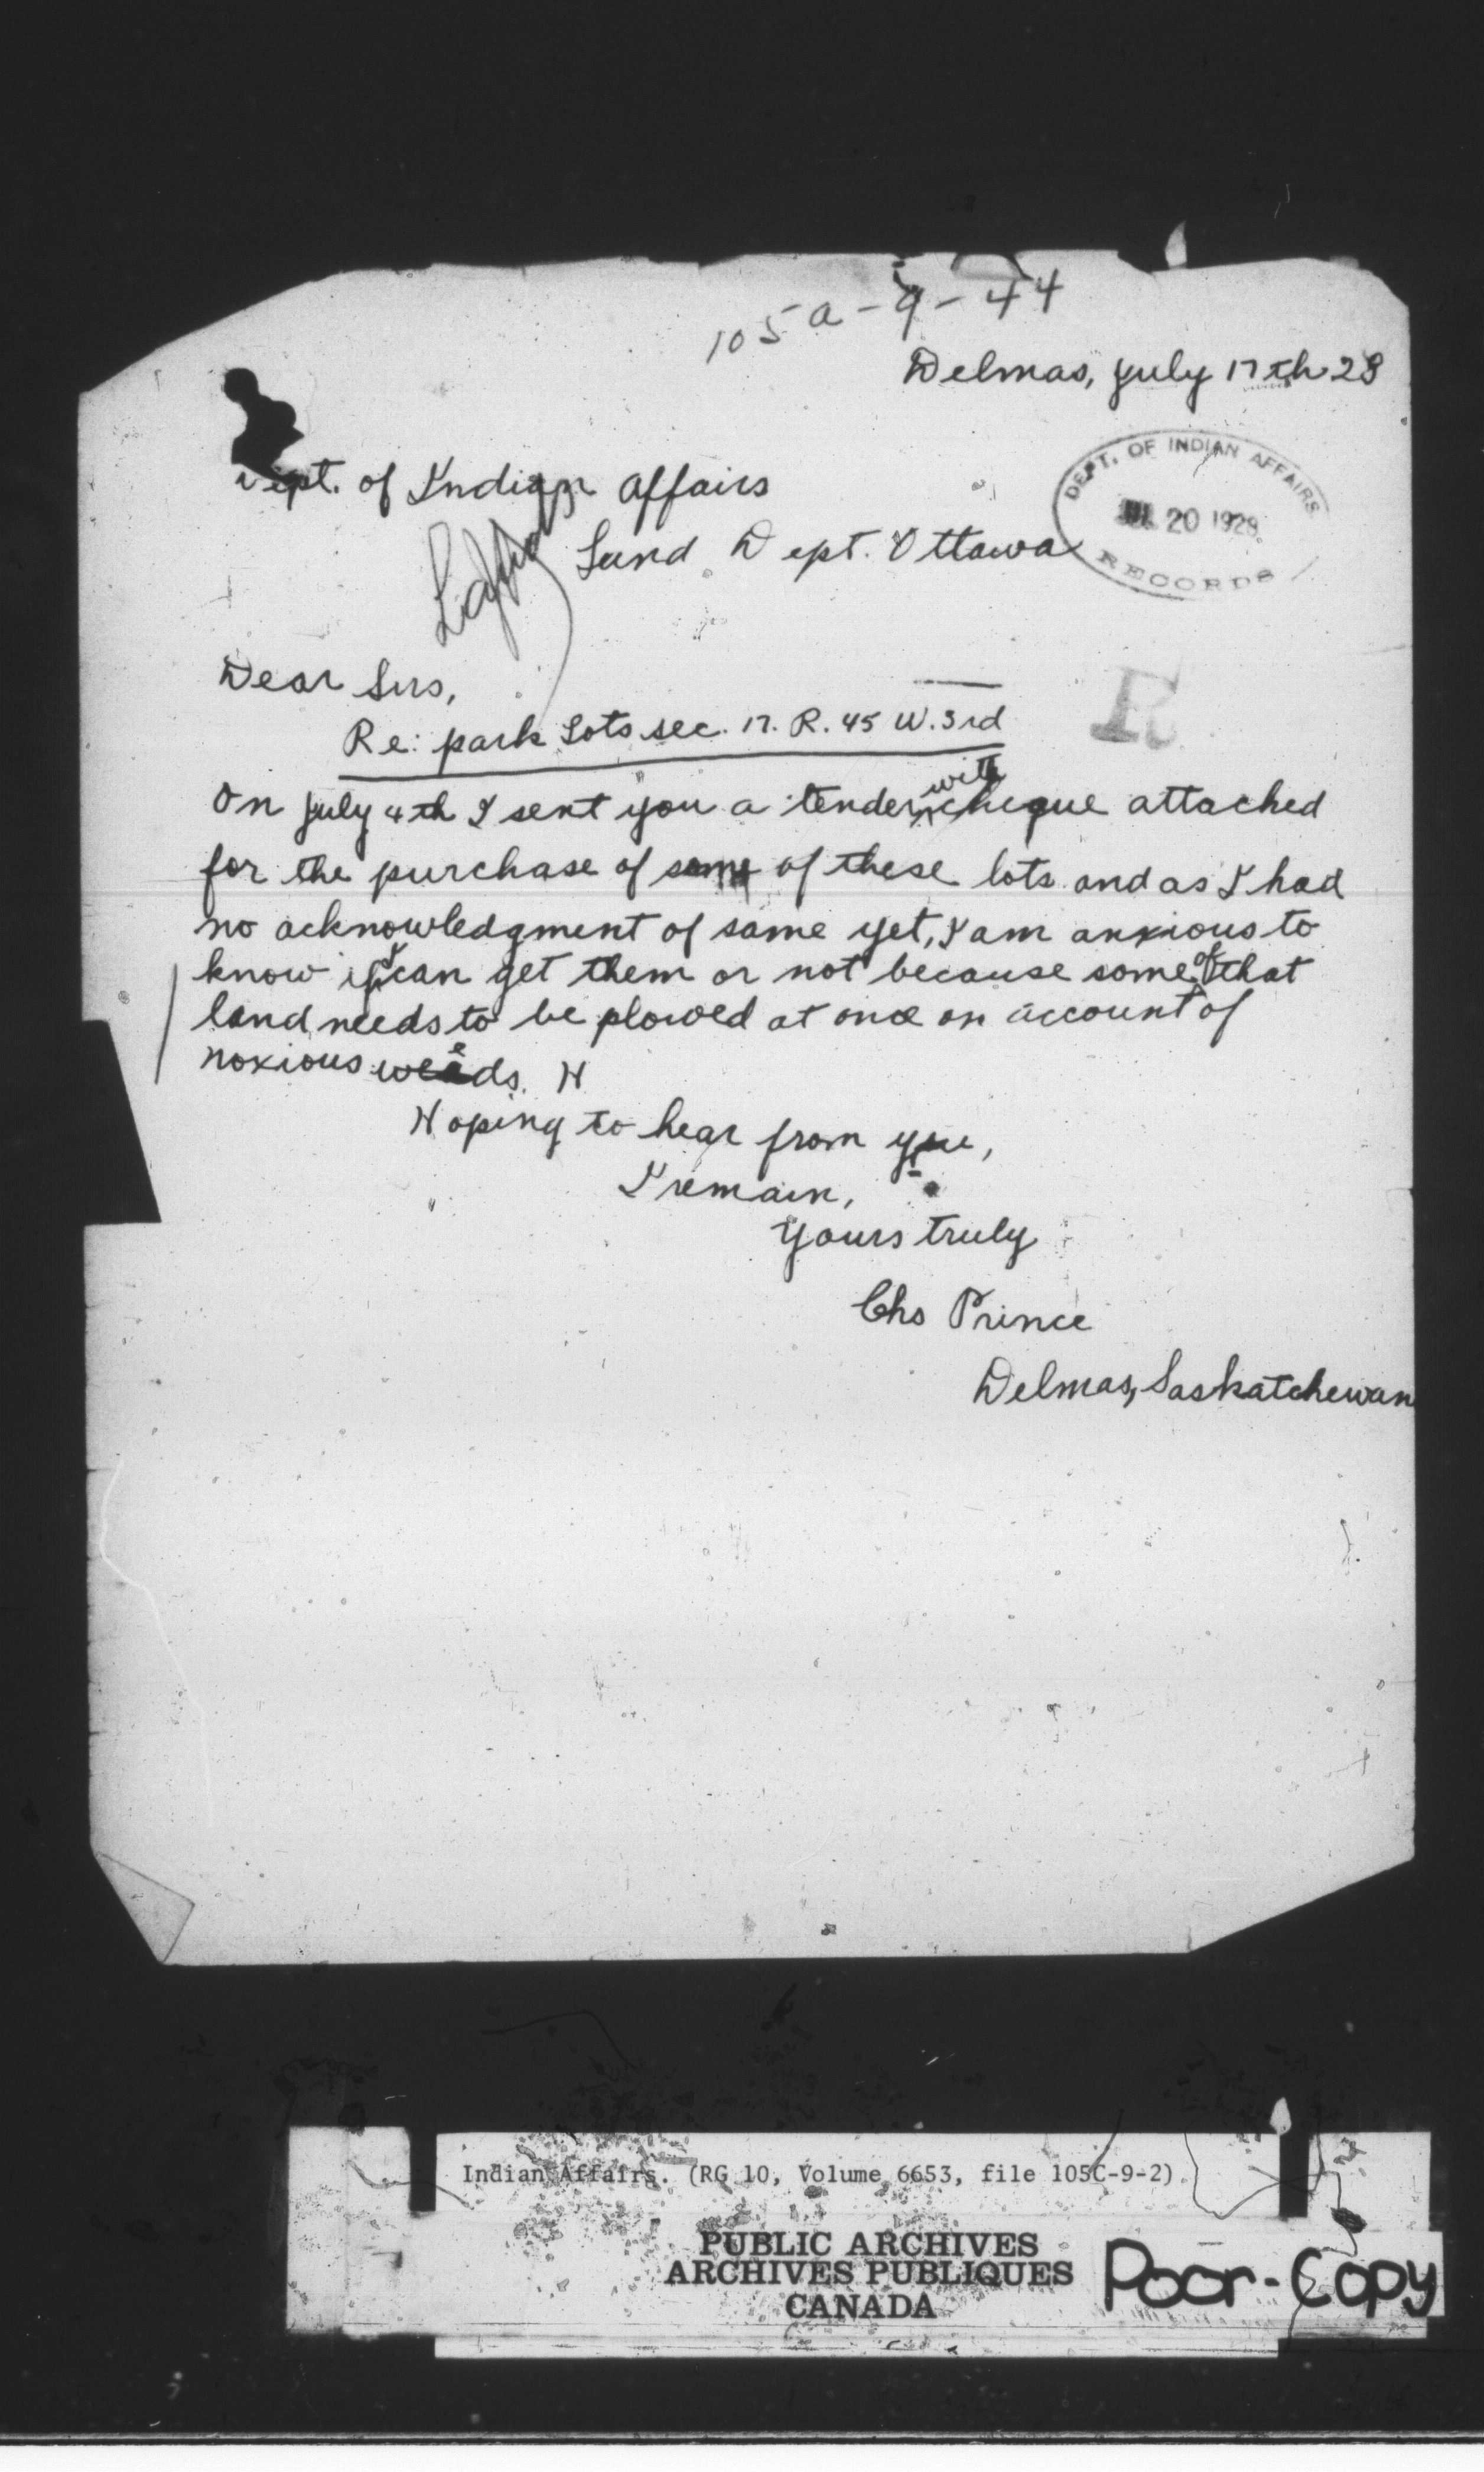 105 a-9-44
Delmas, July 17th 28
Dept. of Indian Affairs
DEPT. OF INDIAN AFFAIRS
JUL 20 1928
RECORDS
Land Dept. Ottawa
Dear Sirs,
R
Re: park Lots sec. 17. R. 45 W. 3rd
On July 4th I sent you a tender, with cheque attached
for the purchase of some of these lots and as I had
no acknowledgment of same yet, I am anxious to
know if I can get them or not because some of that
land needs to be plowed at once on account of
noxious weeds. H
Hoping to hear from you,
I remain,
Yours truly
Chs Prince
Delmas, Saskatchewan
Indian Affairs. (RG 10, Volume 6653, file 105C-9-2)
PUBLIC ARCHIVES
ARCHIVES PUBLIQUES
CANADA
Poor-Copy